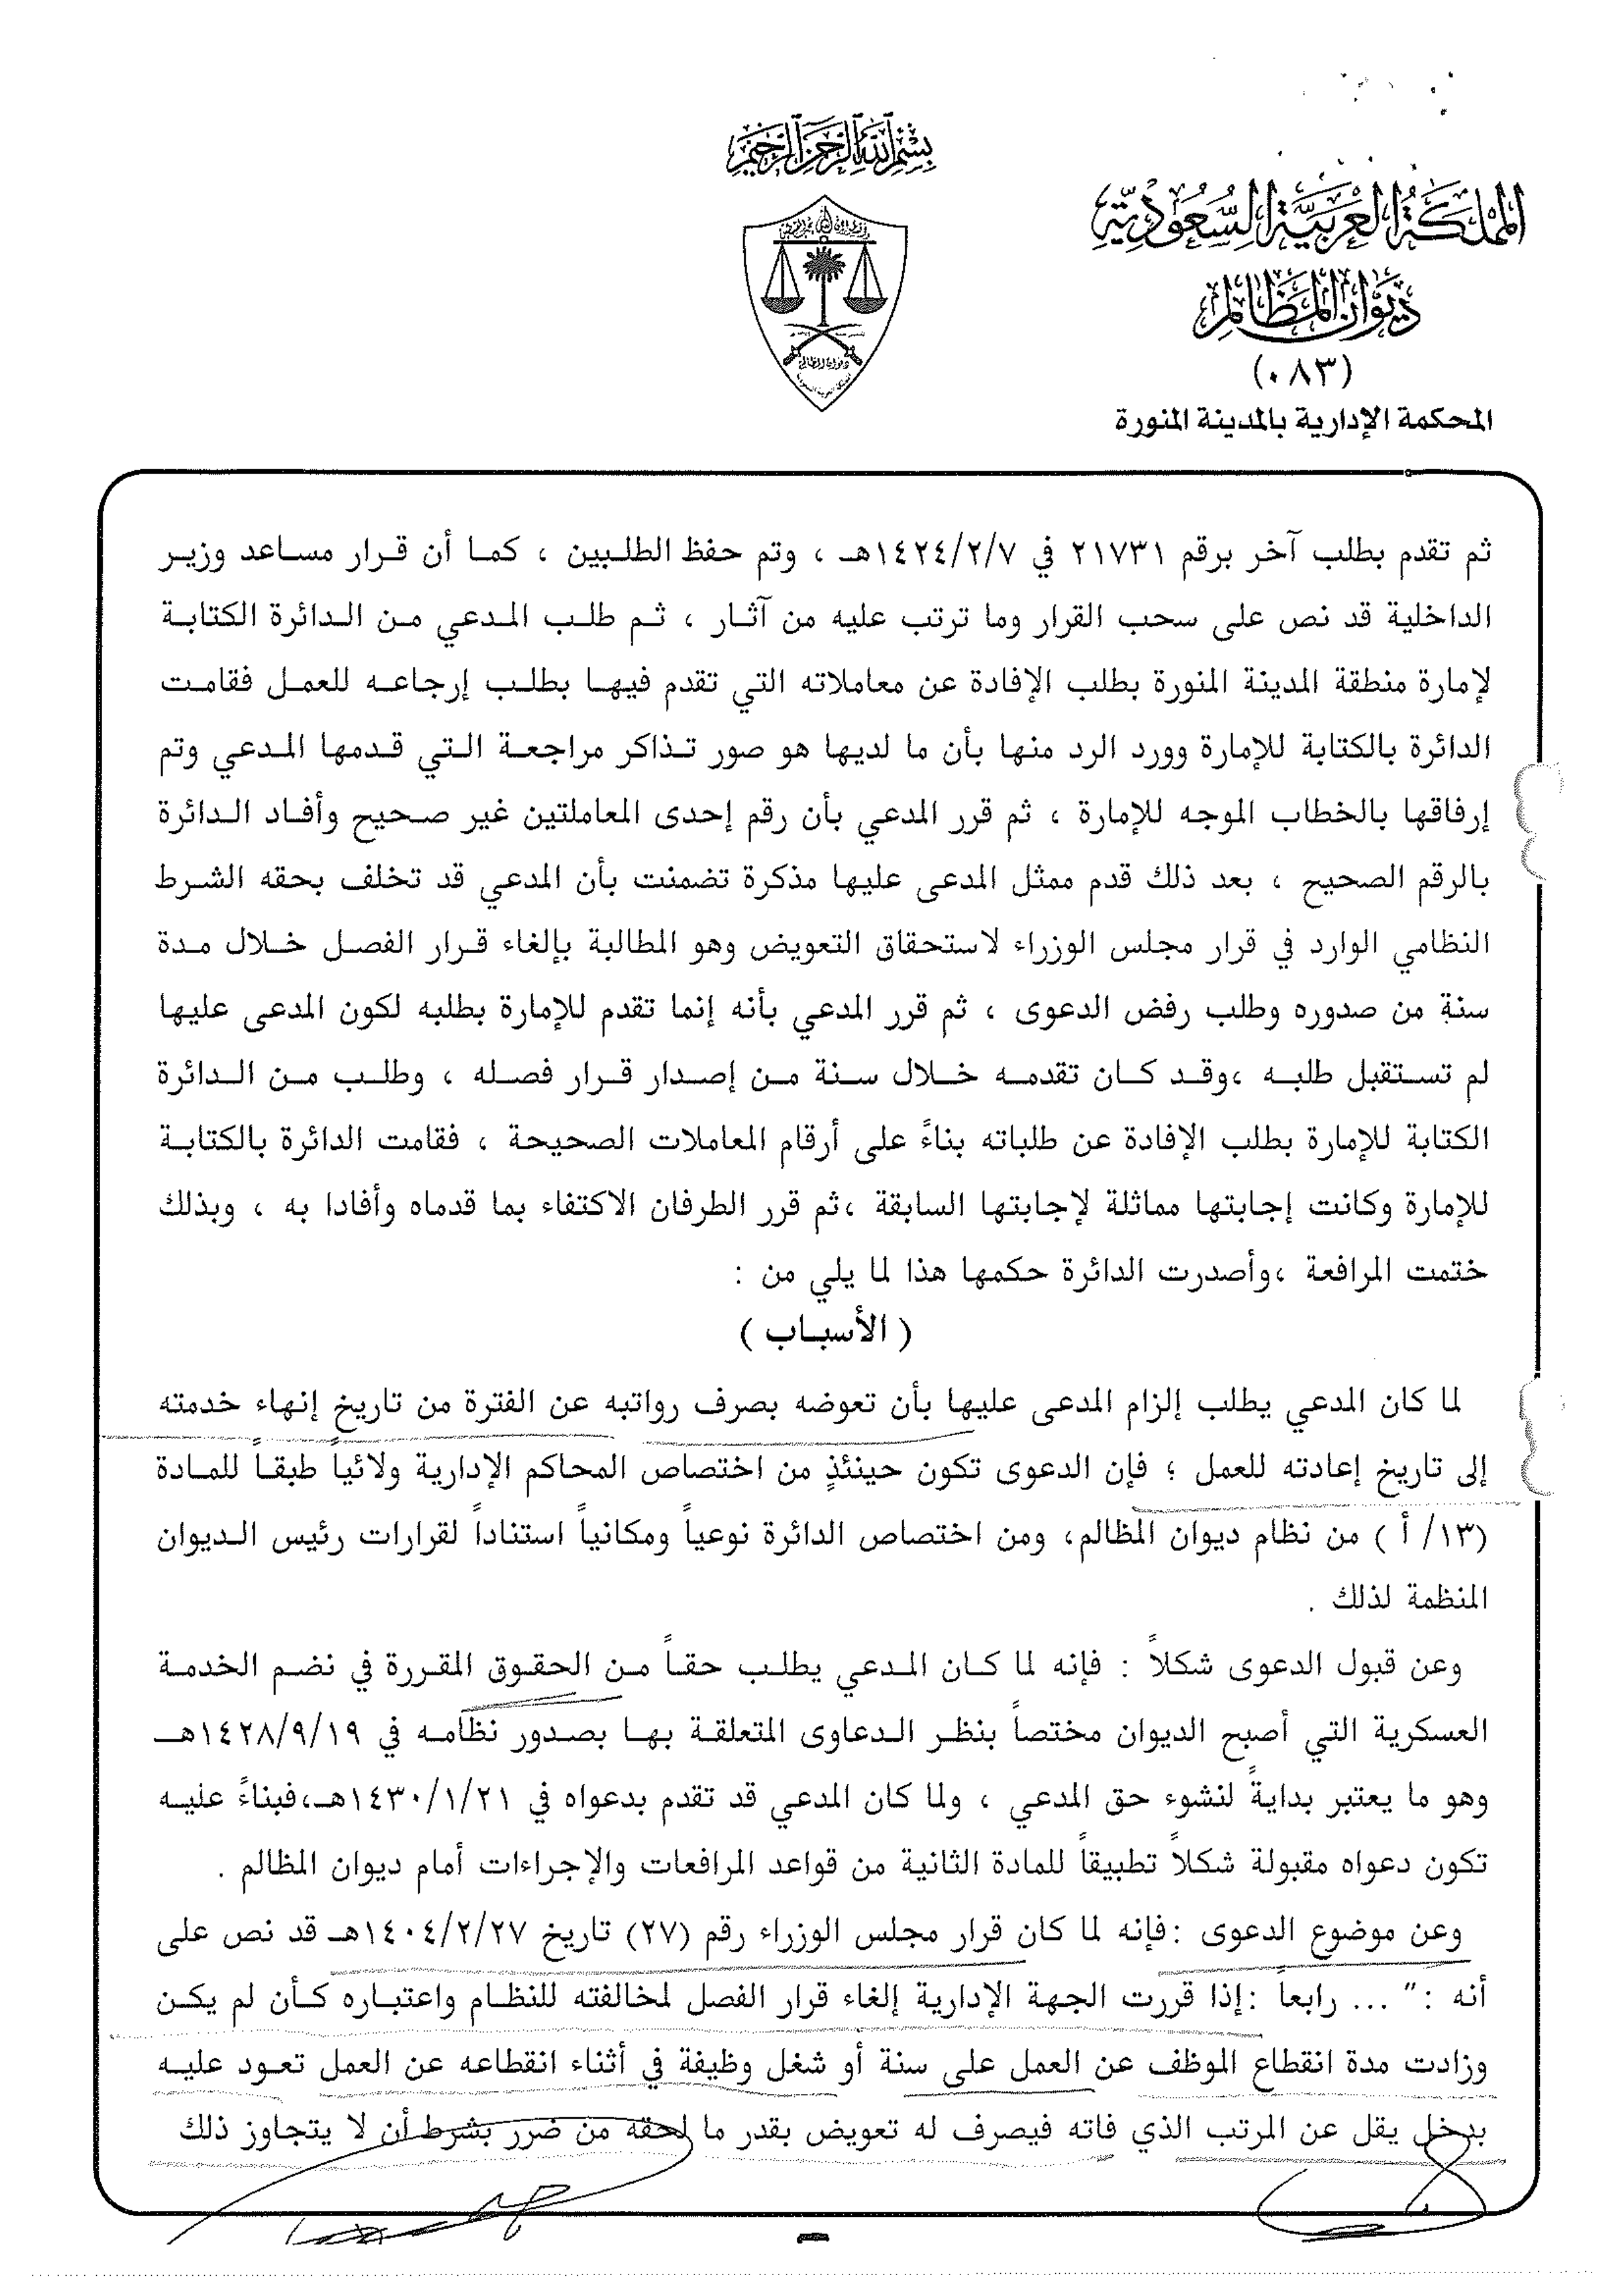 بسم الله الرحمن الرحيم
المملكة العربية السعودية
ديوان المظالم
(٠٨٣)
المحكمة الإدارية بالمدينة المنورة
ديوان المظالم
ثم تقدم بطلب آخر برقم ٢١٧٣١ في ١٤٢٤/٢/٧هـ ، وتم حفظ الطلبين ، كما أن قرار مساعد وزير
الداخلية قد نص على سحب القرار وما ترتب عليه من آثار ، ثم طلب المدعي من الدائرة الكتابة
لإمارة منطقة المدينة المنورة بطلب الإفادة عن معاملاته التي تقدم فيها بطلب إرجاعه للعمل فقامت
الدائرة بالكتابة للإمارة وورد الرد منها بأن ما لديها هو صور تذاكر مراجعة التي قدمها المدعي وتم
إرفاقها بالخطاب الموجه للإمارة ، ثم قرر المدعي بأن رقم إحدى المعاملتين غير صحيح وأفاد الدائرة
بالرقم الصحيح ، بعد ذلك قدم ممثل المدعى عليها مذكرة تضمنت بأن المدعي قد تخلف بحقه الشرط
النظامي الوارد في قرار مجلس الوزراء لاستحقاق التعويض وهو المطالبة بإلغاء قرار الفصل خلال مدة
سنة من صدوره وطلب رفض الدعوى ، ثم قرر المدعي بأنه إنما تقدم للإمارة بطلبه لكون المدعى عليها
لم تستقبل طلبه ،وقد كان تقدمه خلال سنة من إصدار قرار فصله ، وطلب من الدائرة
الكتابة للإمارة بطلب الإفادة عن طلباته بناءً على أرقام المعاملات الصحيحة ، فقامت الدائرة بالكتابة
للإمارة وكانت إجابتها مماثلة لإجابتها السابقة ،ثم قرر الطرفان الاكتفاء بما قدماه وأفادا به ، وبذلك
ختمت المرافعة ،وأصدرت الدائرة حكمها هذا لما يلي من :
( الأسباب )
لما كان المدعي يطلب إلزام المدعى عليها بأن تعوضه بصرف رواتبه عن الفترة من تاريخ إنهاء خدمته
إلى تاريخ إعادته للعمل ؛ فإن الدعوى تكون حينئذٍ من اختصاص المحاكم الإدارية ولائياً طبقاً للمادة
(١٣/ أ ) من نظام ديوان المظالم، ومن اختصاص الدائرة نوعياً ومكانياً استناداً لقرارات رئيس الديوان
المنظمة لذلك .
وعن قبول الدعوى شكلاً : فإنه لما كان المدعي يطلب حقاً من الحقوق المقررة في نضم الخدمة
العسكرية التي أصبح الديوان مختصاً بنظر الدعاوى المتعلقة بها بصدور نظامه في ١٤٢٨/٩/١٩هـ
وهو ما يعتبر بدايةً لنشوء حق المدعي ، ولما كان المدعي قد تقدم بدعواه في ١٤٣٠/١/٢١هـ،فبناءً عليه
تكون دعواه مقبولة شكلاً تطبيقاً للمادة الثانية من قواعد المرافعات والإجراءات أمام ديوان المظالم .
وعن موضوع الدعوى :فإنه لما كان قرار مجلس الوزراء رقم (٢٧) تاريخ ١٤٠٤/٢/٢٧هـ قد نص على
أنه :" ... رابعاً :إذا قررت الجهة الإدارية إلغاء قرار الفصل لمخالفته للنظام واعتباره كأن لم يكن
وزادت مدة انقطاع الموظف عن العمل على سنة أو شغل وظيفة في أثناء انقطاعه عن العمل تعود عليه
بدخل يقل عن المرتب الذي فاته فيصرف له تعويض بقدر ما لحقه من ضرر بشرط أن لا يتجاوز ذلك